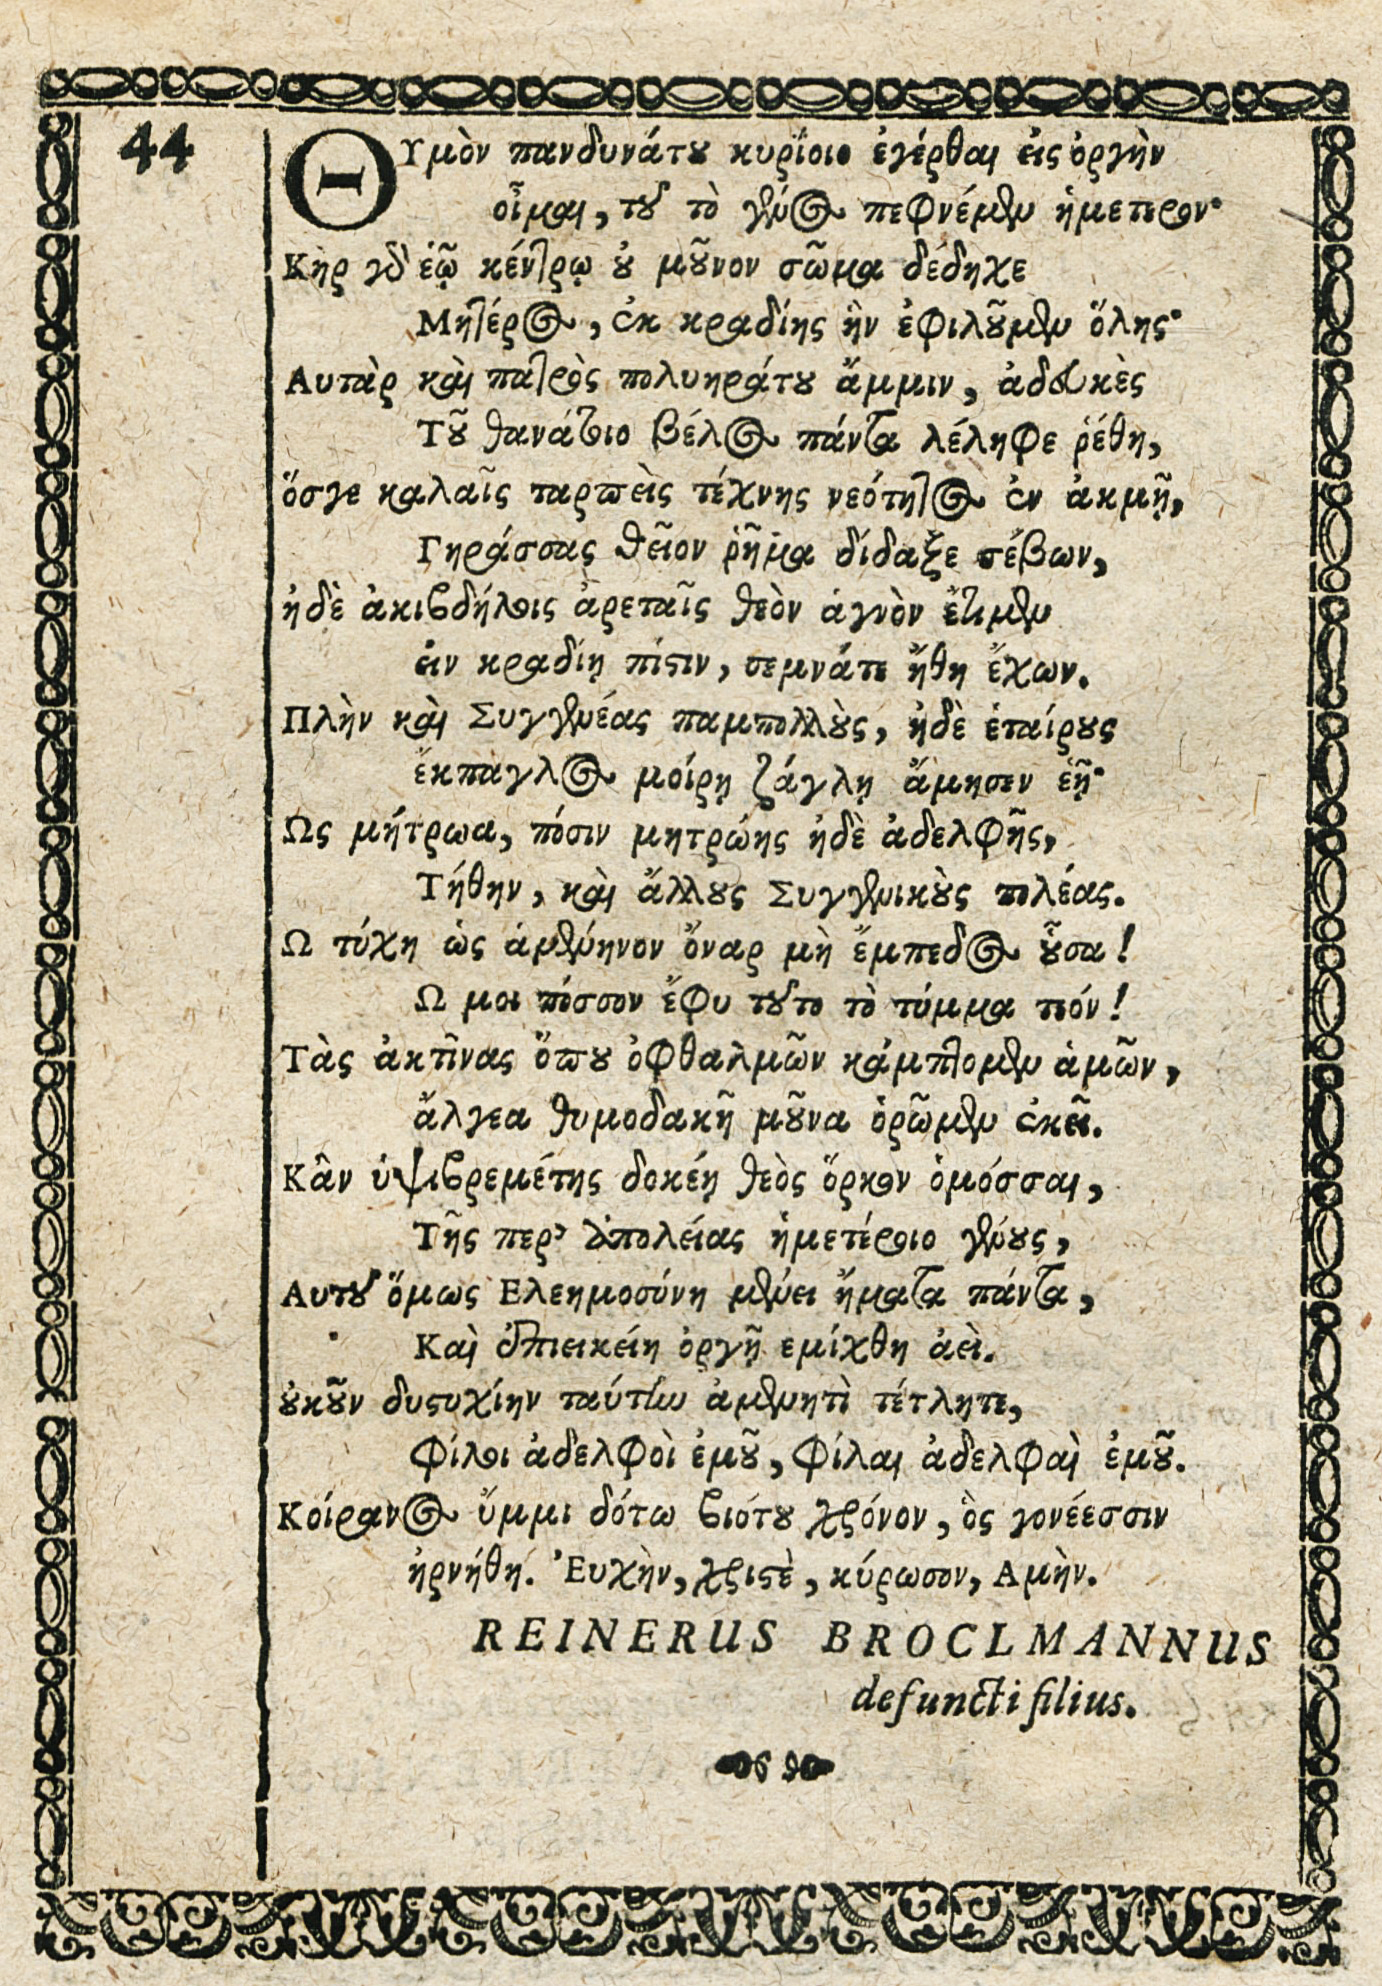 44
ΘΥμὸν πανδυνάτȣ κυρίοιο ἐγέρθαι εἰς ὀργὴν
οἶμαι, τȣ͂ τὸ γένος πεφνέμεν ἡμετερον·
Κὴρ γδ ἑῷ κέντρῳ ȣ μȣ͂νον σῶμα δέδηχε
Μητέρος, ἐκ κραδίης ἣν ἐφιλȣ͂μεν ὅλης·
Αυτὰρ καὶ πατρὸς πολυηράτȣ ἄμμιν, ἀδευκὲς
Τȣ͂ θανάτοιο βέλος πάντα λέληφε ῥέθη,
ὅσγε καλαῖς ταρπεὶς τέχνης νεότητος ἐν ἀκμῇ,
Γηράσσας θεῖον ῥῆμα δίδαξε σέβων,
ἠδὲ ἀκιβδήλοις ἀρετaῖς θεὸν ἁγνὸν ἔτιμεν
εἰν κραδίῃ πίστιν, σεμνάτε ἤθη ἔχων.
Πλὴν καὶ Συγγενέας παμπολλȣ̀ς, ἠδὲ ἑταίρȣς
ἔκπαγλος μοίρη ζάγλῃ ἄμησεν ἑῇ·
Ως μήτρωα, πόσιν μητρώης ἠδὲ ἀδελφῆς,
Τήθην, καὶ ἄλλȣς Συγγενικȣ̀ς πολέας.
Ω τύχη ὡς ἀμενήνον ὄναρ μὴ ἔμπεδος ȣ̓͂σα!
Ω μοι πόσσον ἔφυ τȣ͂το τὸ τύμμα τεόν!
Τὰς ἀκτῖνας ὅπȣ ὀφθαλμῶν κάμπτομεν ἁμῶν,
ἄλγεα θυμοδακῆ μȣ͂να ὁρῶμεν ἐκεῖ.
Κἂν ὑψιβρεμέτης δοκέῃ θεὸς ὅρκον ὀμόσσαι,
Τῆς περ’ ἀπολείας ἡμετέροιο γένȣς,
Αυτȣ͂ ὅμως Ελεημοσύνη μένει ἤματα πάντα,
Καὶ ἐπιεικείη ὀργῇ εμίχθη ἀεὶ.
ȣκȣ͂ν δυστυχίην ταύτην ἀμενητὶ τέτλητε,
Φίλοι ἀδελφοὶ ἐμȣ͂, Φίλαι ἀδελφαὶ ἐμȣ͂.
Κοίρανος ὔμμι δότω βιότȣ χρόνον, ὃς γονέεσσιν
ἠρνήθη. Ἐυχὴν, χριστὲ, κύρωσον, Αμὴν.
REINERUS BROCLMANNUS
defuncti filius.